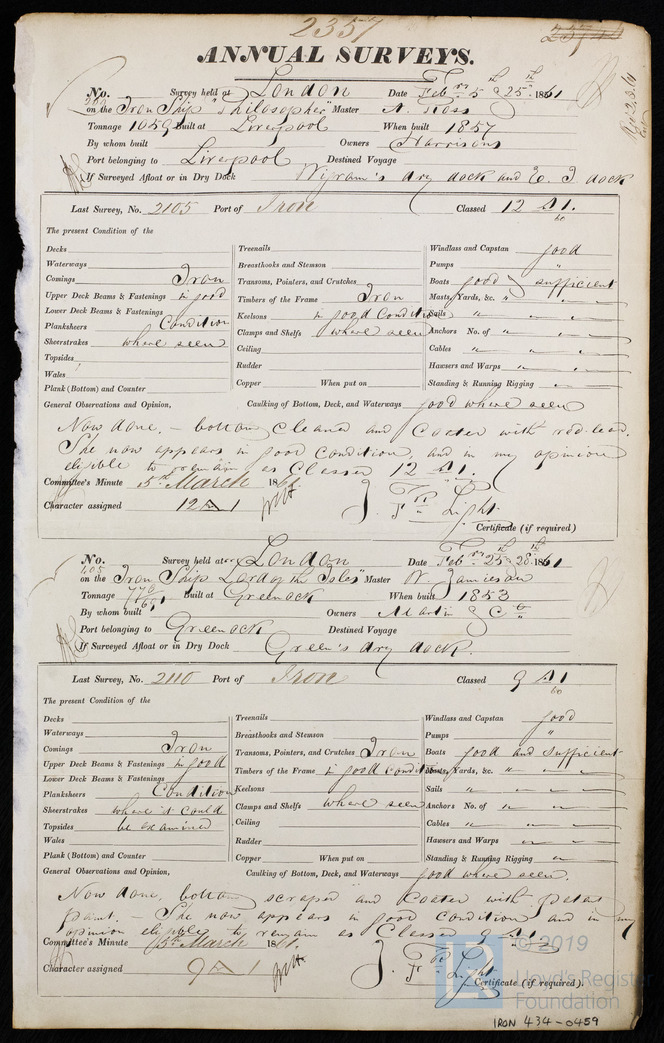 2357
ANNUAL SURVEYS.
No. 200 Survey held at London Date Feby 5th & 25th 1861
on the Iron Ship "Philosopher" Master A. Ross
Tonnage 1059 Built at Liverpool When built 1857
By whom built Owners Harrisons
Port belonging to Liverpool Destined Voyage
If Surveyed Afloat or in Dry Dock Wigram's dry dock and E. I. dock
Last Survey, No. 2105 Port of Iron Classed 12 A1.
60
The present Condition of the
Decks
Waterways
Comings Iron
Upper Deck Beams & Fastenings in good
Lower Deck Beams & Fastenings
Planksheers Condition
Sheerstrakes where seen
Topsides
Wales
Plank (Bottom) and Counter
Treenails
Breasthooks and Stemson
Transoms, Pointers, and Crutches
Timbers of the Frame Iron
Keelsons in good Condition
Clamps and Shelfs where seen
Ceiling
Rudder
Copper When put on
Windlass and Capstan good
Pumps "
Boats good & sufficient
Masts, Yards, &c. " " "
Sails " " "
Anchors No. of " " "
Cables " " "
Hawsers and Warps " " "
Standing & Running Rigging "
General Observations and Opinion, Caulking of Bottom, Deck, and Waterways good where seen
Now done. – bottom cleaned and Coated with red-lead.
She now appears in good condition, and in my opinion
eligible to remain as Classed 12 A1.
Committee's Minute 5th March 1861
Character assigned 12 A 1
J. Light
Certificate (if required)
No. 205 Survey held at London Date Feby 25th & 28th 1861
on the Iron Ship "Lord of the Isles" Master W. Jamieson
Tonnage 770 Built at Greenock When built 1853
By whom built Owners Martin & Co
Port belonging to Greenock Destined Voyage
If Surveyed Afloat or in Dry Dock Green's dry dock.
Last Survey, No. 2110 Port of Iron Classed 9 A1
60
The present Condition of the
Decks
Waterways
Comings Iron
Upper Deck Beams & Fastenings in good
Lower Deck Beams & Fastenings
Planksheers Condition
Sheerstrakes where it could
Topsides be examined
Wales
Plank (Bottom) and Counter
Treenails
Breasthooks and Stemson
Transoms, Pointers, and Crutches Iron
Timbers of the Frame in good Condition
Keelsons
Clamps and Shelfs where seen
Ceiling
Rudder
Copper When put on
Windlass and Capstan good
Pumps "
Boats good and sufficient
Masts, Yards, &c. " " "
Sails " " "
Anchors No. of " " "
Cables " " "
Hawsers and Warps " " "
Standing & Running Rigging "
General Observations and Opinion, Caulking of Bottom, Deck, and Waterways good where seen.
Now done, bottom scraped and Coated with patent
paint. – She now appears in good condition and in my
opinion eligible to remain as Classed 9 A1.
Committee's Minute 5th March 1861.
Character assigned 9 A 1
J. Light
Certificate (if required).
© 2019
Lloyd's Register
Foundation
IRON 434-0459